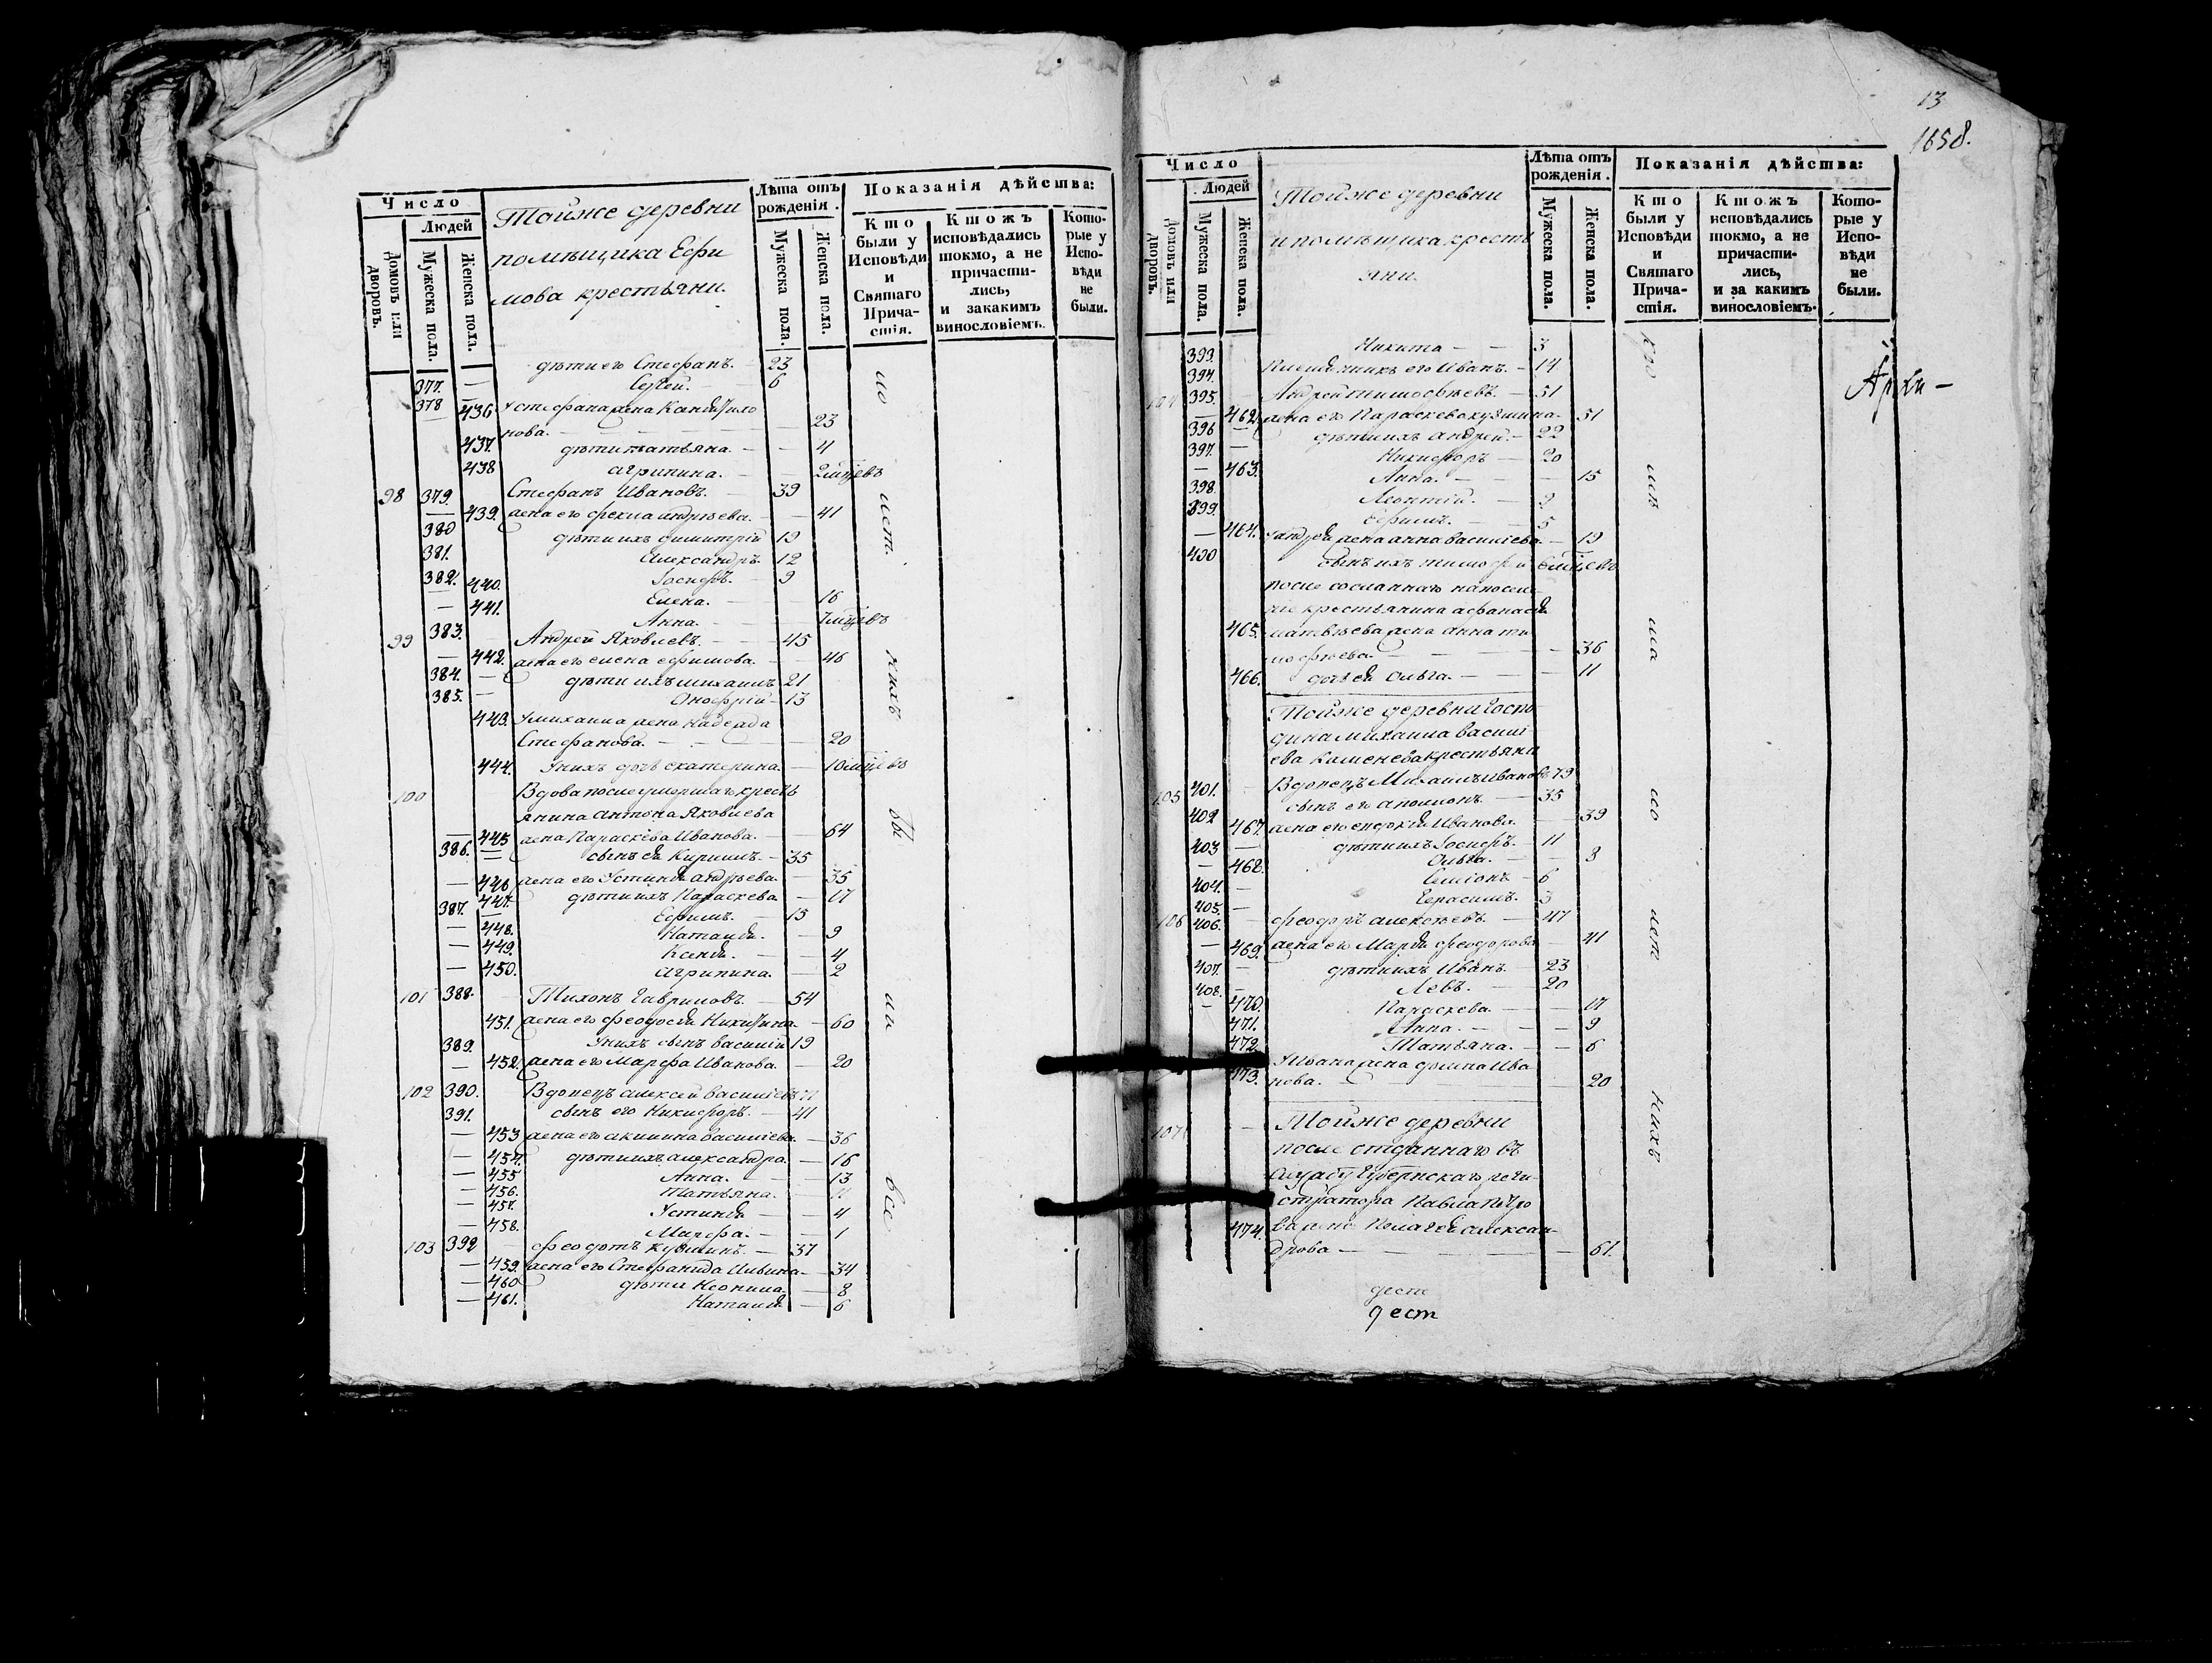 Число
Людей
Домовъ или дворовъ.
Мужеска пола.
Женска пола.
Тойже деревни
помѣщика Ефи
мова крестьяни.
Лѣта отъ рожденія.
Мужеска пола.
Женска пола.
Показанія дѣйства:
Кто были у Исповѣди и Святаго Прича- стія.
Ктожъ исповѣдались токмо, а не причасти- лись, и закакимъ винословіемъ.
Кото- рые у Испо- вѣди не были.
377. — дѣти его Стефанъ. — 23
378 — — 6
436 Устефана жена
нова. — 23
437. дѣти татьяна. — 4
438 агрипина. — 2
98 379. Стефанъ Ивановъ. — 39
439. жена его андрѣева. — 41
380 дѣти ихъ димитрій 19
381. Александръ. 12
382. Іосифъ. — 9
440. Елена. — 16
441. Анна. —
99 383. Андрей Яковлевъ. — 45
442. жена его елена ефимова. — 46
384. — дѣти ихъ михаилъ 21
385. — Онофрій — 13
443. Умихаила жена надежда
Стефанова. — 20
444. Унихъ дочь екатерина. — 10
100 Вдова после умершаго кресть
янина антона Яковлева
445 жена Параскева Иванова. — 64
386. сынъ ея Кирилъ. — 35
446 жена его Устинія андрѣева. — 35
447. дѣти ихъ Параскева — 17
387. Ефимъ. — 15
448. Наталія. — 9
449. Ксенія. — 4
450. агрипина. — 2
101 388. Тихонъ Гавриловъ. — 54
451. жена его феодосія Никитина — 60
389. Унихъ сынъ василій 19
452. жена его Марфа Иванова. — 20
102 390. Вдовецъ алексей василіевъ 77
391. сынъ его Никифоръ. — 41
453 жена его акилина василіева. — 36
454. дѣти ихъ александра. — 16
455 Анна. — 13
456. Татьяна. —
457. Устинія — 4
458. Марфа. — 1
103 392 феодотъ — 37
459. жена его Стефанида Ильина — 34
460 дѣти Неонила. — 8
461. Наталія — 6
ис
нихъ
бы
ли
все
13
1658.
Число
Людей
Домовъ или дворовъ.
Мужеска пола.
Женска пола.
Тойже деревни
ипомѣщика кресть
яни.
Лѣта отъ рожденія.
Мужеска пола.
Женска пола.
Показанія дѣйства:
Кто были у Исповѣди и Святаго Прича- стія.
Ктожъ исповѣдались токмо, а не причасти- лись, и за какимъ винословіемъ.
Кото- рые у Испо- вѣди не были.
393. Никита — 3
394. его Иванъ. — 14
104 395. Андрей тимофѣевъ. — 51
462. жена его Параскева — 51
396 — дѣти ихъ андрей. — 22
397. — Никифоръ — 20
463. Анна. — 15
398. Леонтій. —
399. Ефимъ. — 5
464. Уандрея жена анна василіева. — 19
400 сынъ ихъ тимофей
после сосланнаго напоселе
ніе крестьянина афанасія
465. матвѣева жена анна ти
мофѣева. — 36
466. дочь ея Ольга. — 11
Тойже деревни Госпо
дина михаила василі
ева Каменева крестьяни
105 401. Вдовецъ Михаилъ ивановъ 79
402 сынъ его — 35
467. жена его Иванова. — 39
403 дѣти ихъ Іосифъ. — 11
468. Ольга. — 8
404. — Симіонъ — 6
405. — Герасимъ. 3
106 406. феодоръ алексѣевъ. — 47
469. жена его Марія феодорова — 41
407. — дѣти ихъ Иванъ. — 23
408. — Левъ. — 20
470. Параскева. — 17
471. Анна. — 9
472. Татьяна. — 6
473. Уивана жена домна Ива
нова. — 20
107 Тойже деревни
после отданнаго въ
службу Губернскаго реги
стратора Павла
474. Пелагея алексан
дрова — 61.
нихъ
Архи —
дест
дест